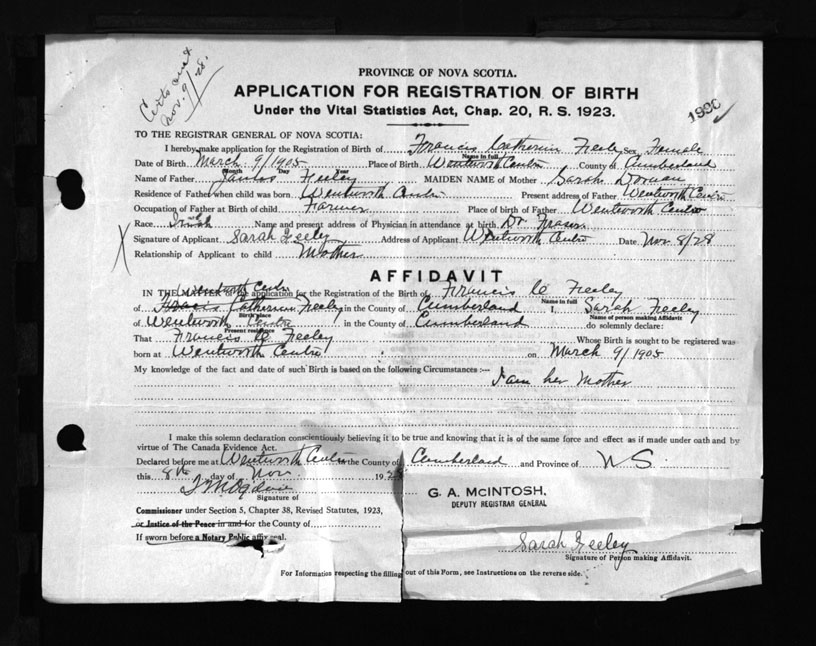 Certs out
Nov. 9/28.
PROVINCE OF NOVA SCOTIA.
APPLICATION FOR REGISTRATION OF BIRTH
Under the Vital Statistics Act, Chap. 20, R. S. 1923.
TO THE REGISTRAR GENERAL OF NOVA SCOTIA:
I hereby make application for the Registration of Birth of Francis Catherin Feeley Sex Female
Name in full
Date of Birth March 9/1905 Place of Birth Wentworth Centre County of Cumberland
Month Day Year
Name of Father James Feeley MAIDEN NAME of Mother Sarah Dornan
Residence of Father when child was born Wentworth Centre Present address of Father Wentworth Centre
Occupation of Father at Birth of child Farmer Place of birth of Father Wentworth Centre
Race Irish Name and present address of Physician in attendance at birth Dr
Signature of Applicant Sarah Feeley Address of Applicant Wentworth Centre Date Nov. 8/28
Relationship of Applicant to child Mother
AFFIDAVIT
Wentworth Centre
IN THE MATTER of the application for the Registration of the Birth of Francis C Feeley
Name in full
of Francis Catherine Feeley in the County of Cumberland I, Sarah Feeley
Birth place Name of person making Affidavit
of Wentworth Centre in the County of Cumberland do solemnly declare:
Present residence
That Francis C Feeley Whose Birth is sought to be registered was
born at Wentworth Centre on March 9/1905
My knowledge of the fact and date of such Birth is based on the following Circumstances :—
I am her Mother
I make this solemn declaration conscientiously believing it to be true and knowing that it is of the same force and effect as if made under oath and by
virtue of The Canada Evidence Act.
Declared before me at Wentworth Centre in the County of Cumberland and Province of N S.
this 8th day of Nov 1928
Signature of
G. A. McINTOSH,
DEPUTY REGISTRAR GENERAL
Commissioner under Section 5, Chapter 38, Revised Statutes, 1923,
or Justice of the Peace in and for the County of
If sworn before a Notary Public affix seal.
Sarah Feeley
Signature of Person making Affidavit.
For Information respecting the filling out of this Form, see Instructions on the reverse side.